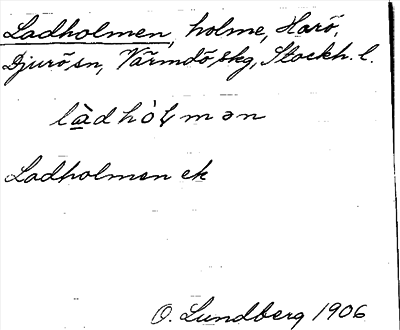 Ladholmen, holme, Harö,
Djurö sn, Värmdö skg, Stockh. l.
làdhòɫmən
Ladholmen ek
O. Lundberg 1906